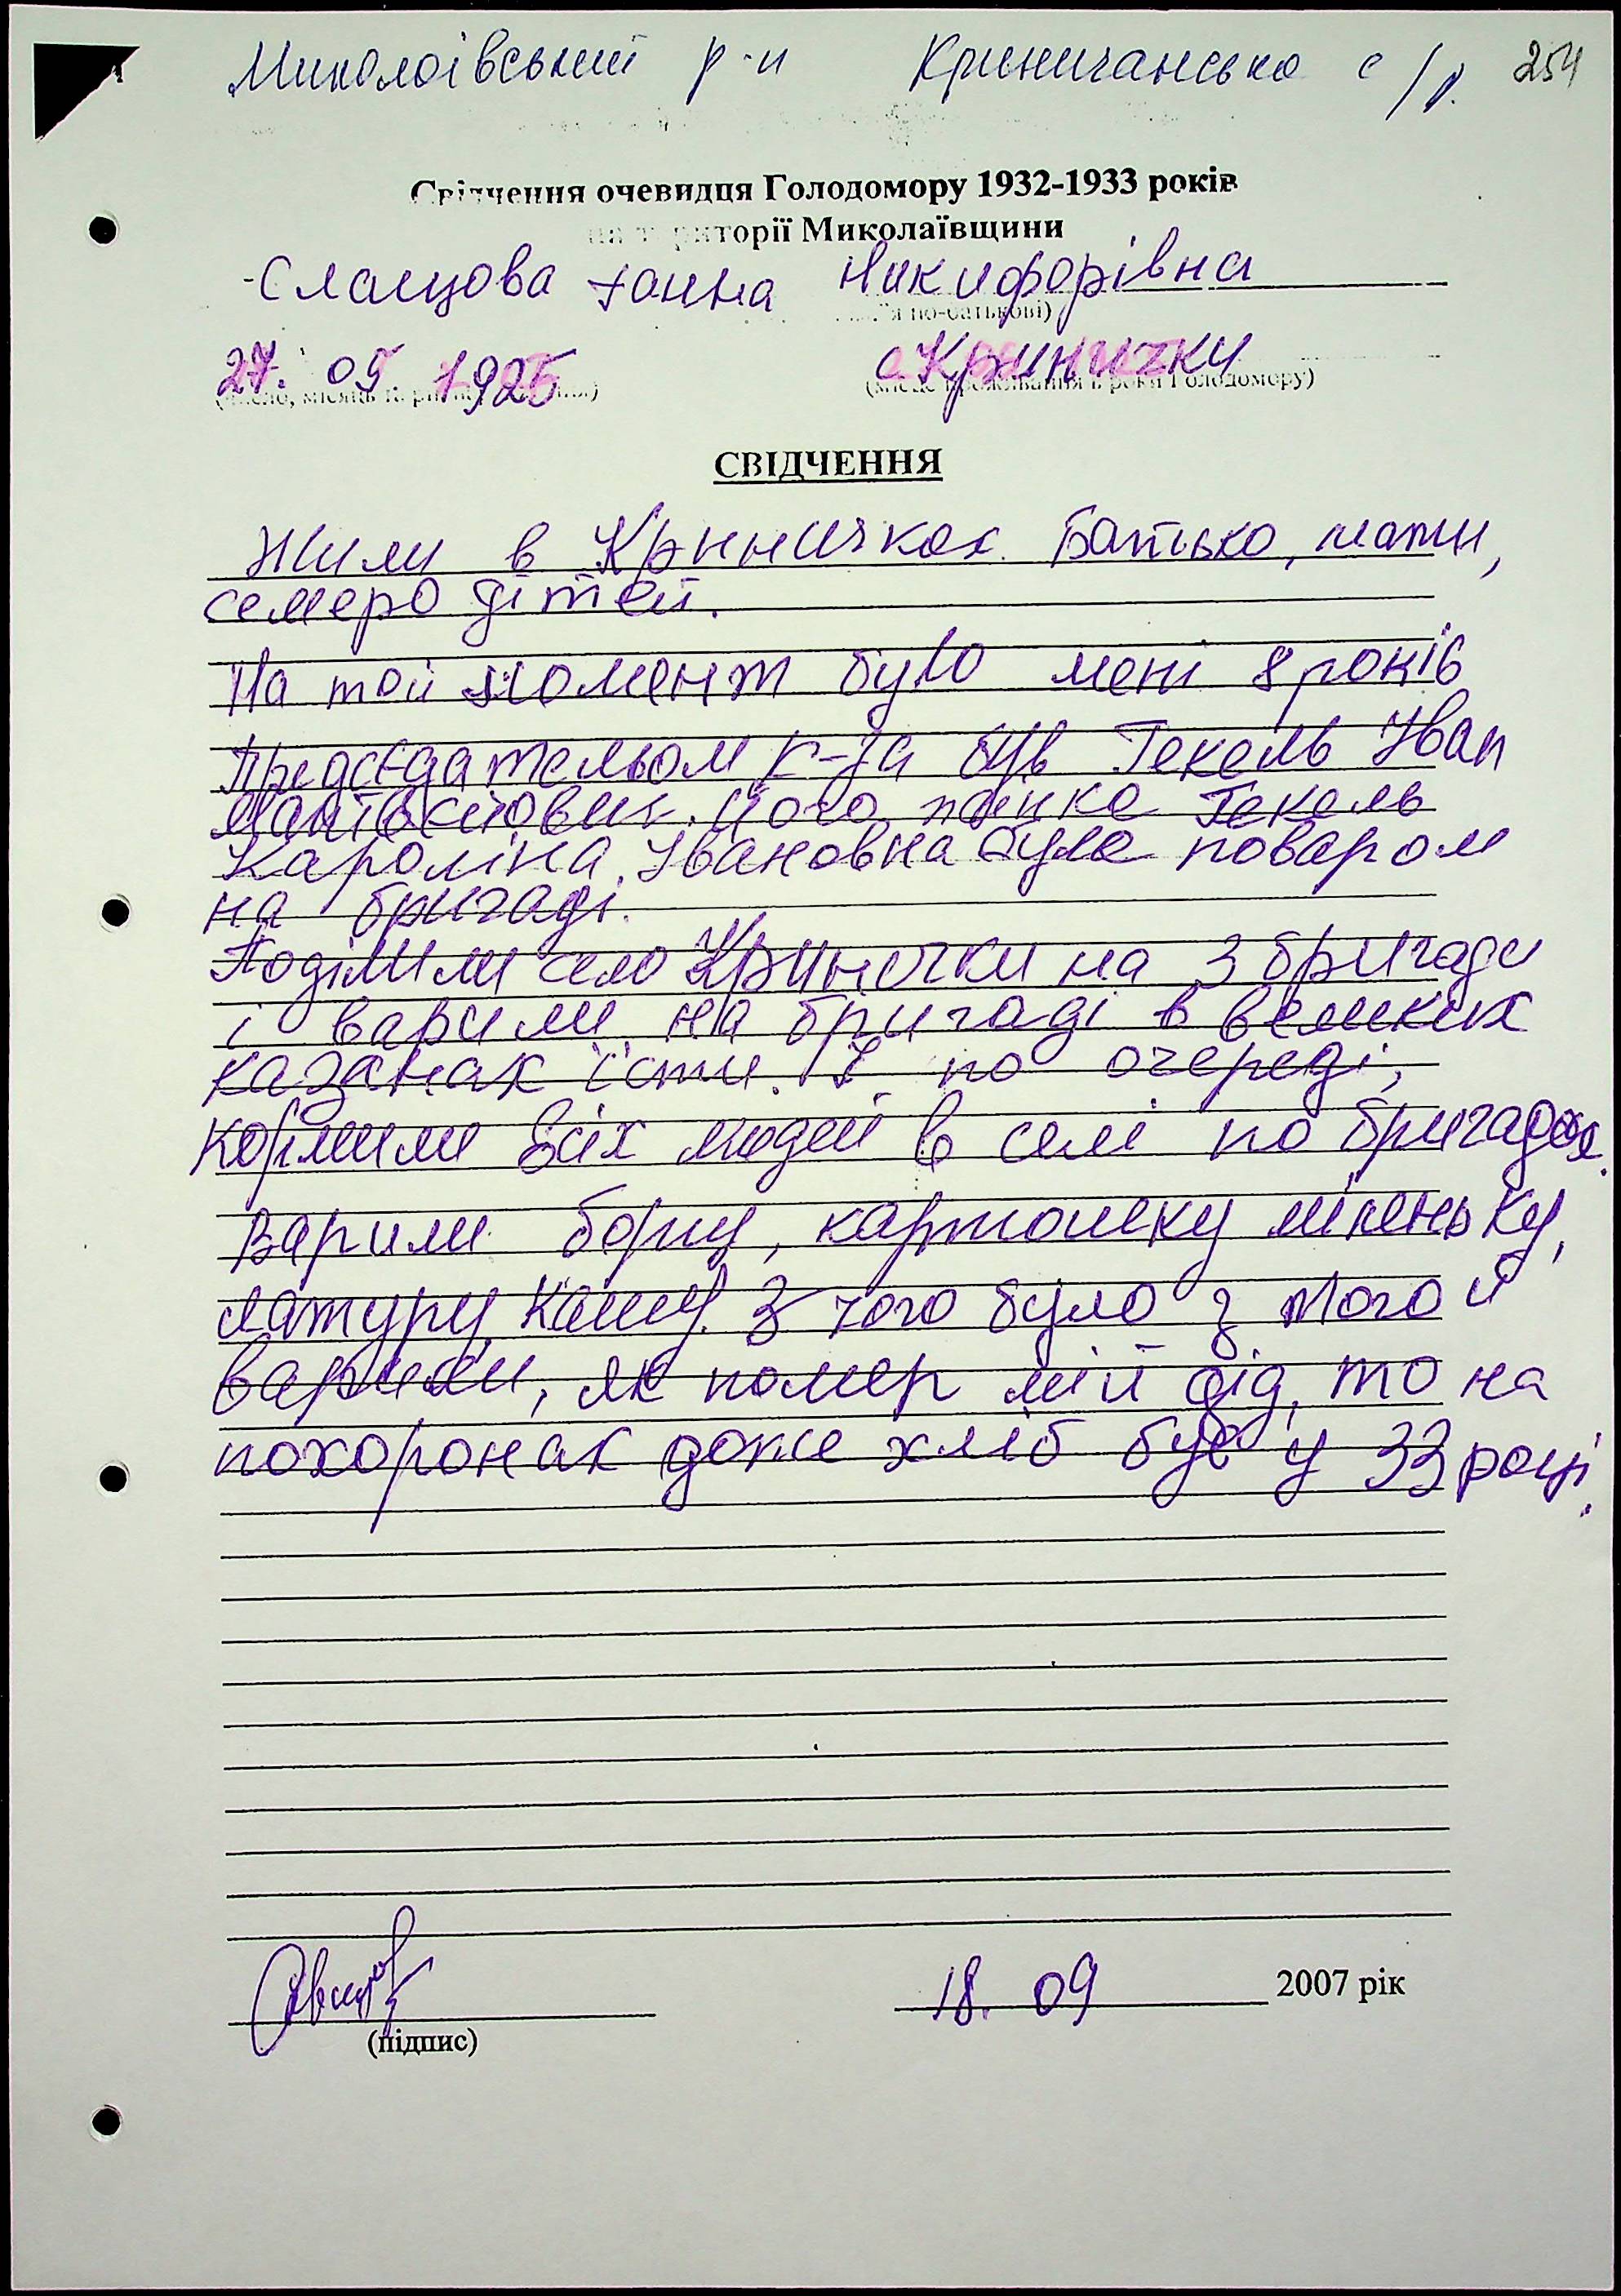 Миколаївський р-н Криничанська с/р. 254
Свідчення очевидця Голодомору 1932-1933 років
на території Миколаївщини
Ганна Никифорівна
по-батькові)
27. 09. 1925 с Кринички
(число, місяць та рік народження) (місце проживання в роки Голодомору)
СВІДЧЕННЯ
Жили в Криничках. Батько, мати,
семеро дітей.
На той момент було мені 8 років
Председательом к-за був Гекель Іван
його жінка Гекель
Кароліна Івановна була поваром
на бригаді.
Поділили село Кринички на 3 бригади
і варили на бригаді в великих
казанах їсти. І по очереді,
кормили всіх людей в селі по бригадах.
Варили борщ, картошку міленьку,
затуру, кашу. З чого було з того й
варили, як помер мій дід, то на
похоронах даже хліб був у 33 році.
(підпис)
18. 09 2007 рік